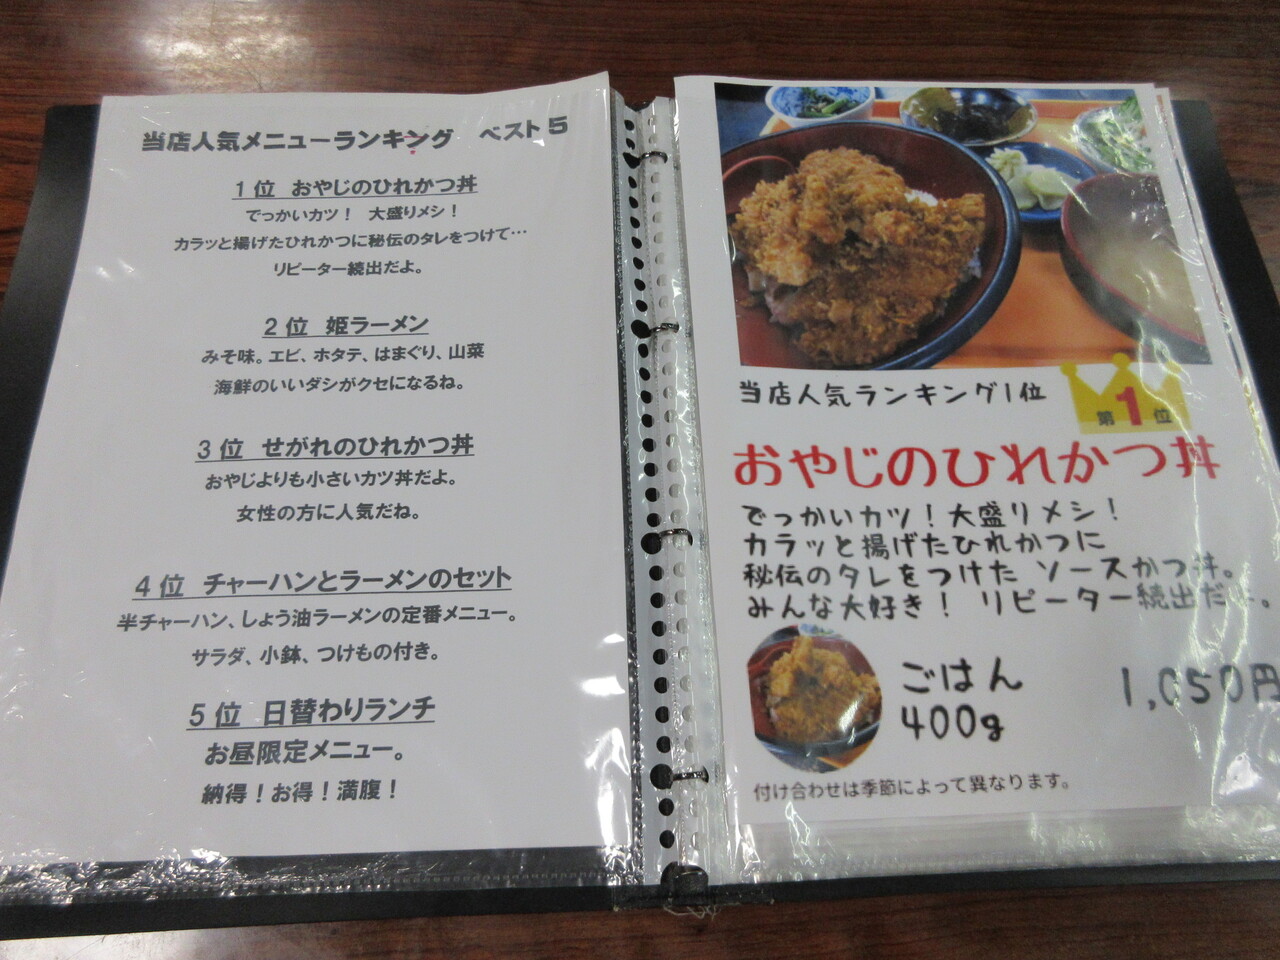 当店人気メニューランキング　ベスト５
１位　おやじのひれかつ丼
でっかいカツ！　大盛りメシ！
カラッと揚げたひれかつに秘伝のタレをつけて…
リピーター続出だよ。
２位　姫ラーメン
みそ味。エビ、ホタテ、はまぐり、山菜
海鮮のいいダシがクセになるね。
３位　せがれのひれかつ丼
おやじよりも小さいカツ丼だよ。
女性の方に人気だね。
４位　チャーハンとラーメンのセット
半チャーハン、しょう油ラーメンの定番メニュー。
サラダ、小鉢、つけもの付き。
５位　日替わりランチ
お昼限定メニュー。
納得！お得！満腹！
当店人気ランキング1位
第1位
おやじのひれかつ丼
でっかいカツ！大盛りメシ！
カラッと揚げたひれかつに
秘伝のタレをつけた ソースかつ丼。
みんな大好き！ リピーター続出だよ。
ごはん
400g
1,050円
付け合わせは季節によって異なります。